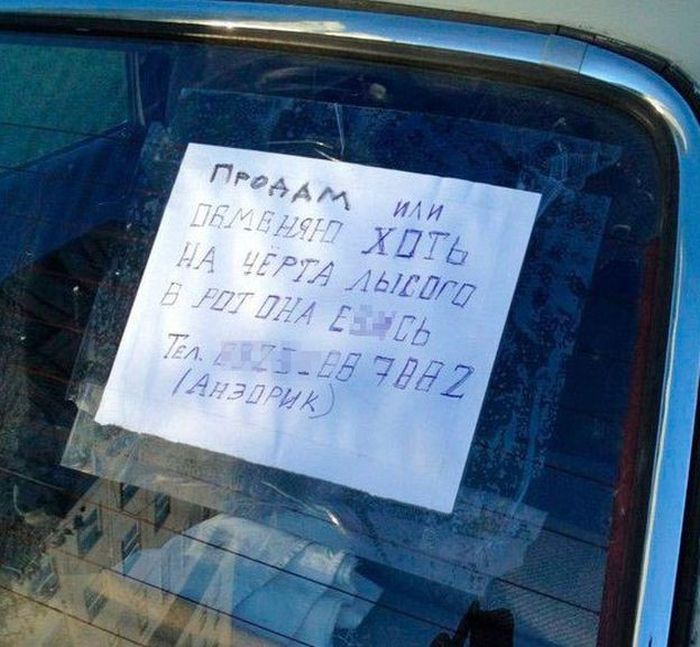 ПРОДАМ ИЛИ
ОБМЕНЯЮ ХОТЬ
НА ЧЁРТА ЛЫСОГО
В РОТ ОНА Е СЬ
Тел. 88 7882
(АНЗОРИК)